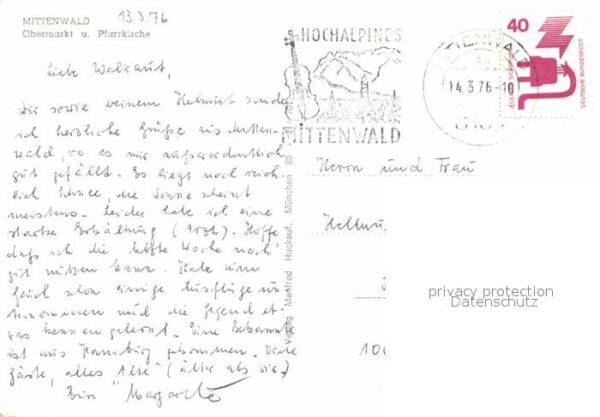 MITTENWALD
Obermarkt u. Pfarrkirche
13.3.76
Liebe Walkaut,
Dir sowie deinem Helmut sende
ich herzliche Grüße aus Mitten-
wald, wo es mir außerordentlich
gut gefällt. Es liegt noch reich-
lich Schnee, die Sonne scheint
meistens. Leider habe ich eine
starke Erkältung (Arzt). Hoffe,
daß ich die letzte Woche noch
gut nützen kann. Habe
schon einige Ausflüge un
ternommen und die Gegend et-
was kennen gelernt. Eine Bekannte
ist aus Hamburg gekommen. Viele
Gäste, alles Alte (älter als wir)
Eure Margarete
Verlag Manfred Huckauf, München 80
HOCHALPINES
MITTENWALD
14.3.76-10
40
DEUTSCHE BUNDESPOST
Herrn und Frau
Hellmu
100
privacy protection
Datenschutz